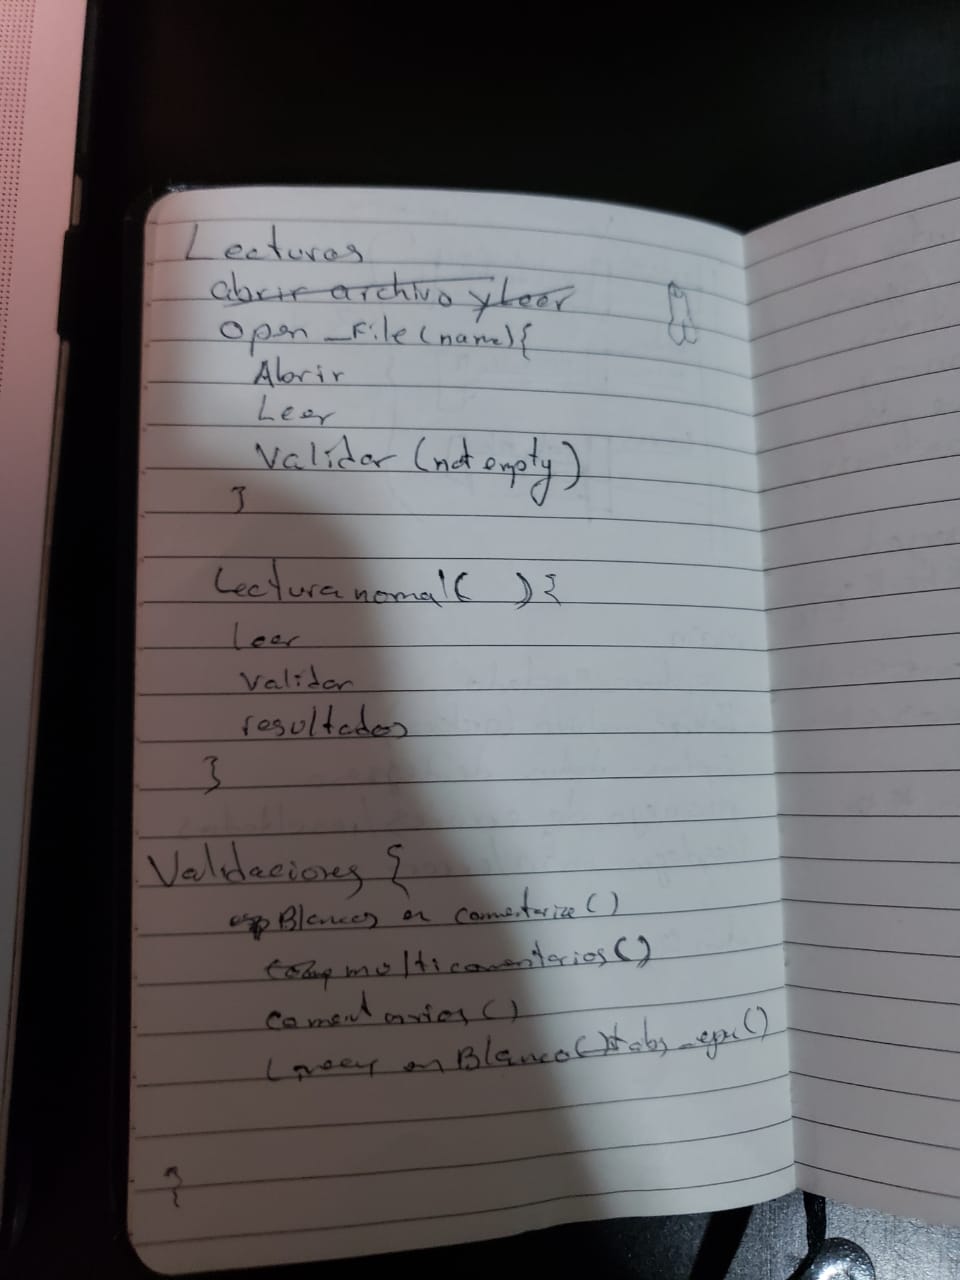 Lecturas
abrir archivo y leer
open_file(name){
Abrir
Leer
Validar (not empty)
}
Lectura nomal( ){
Leer
validar
resultados
}
Validaciones {
Blancos en comentarize()
multicomentarios()
comentarios()
en Blanco()
}